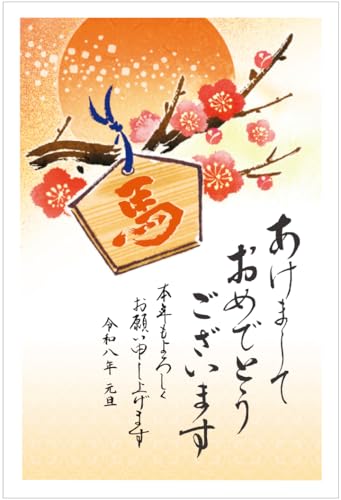 馬
あけまして
おめでとう
ございます
本年もよろしく
お願い申し上げます
令和八年 元旦